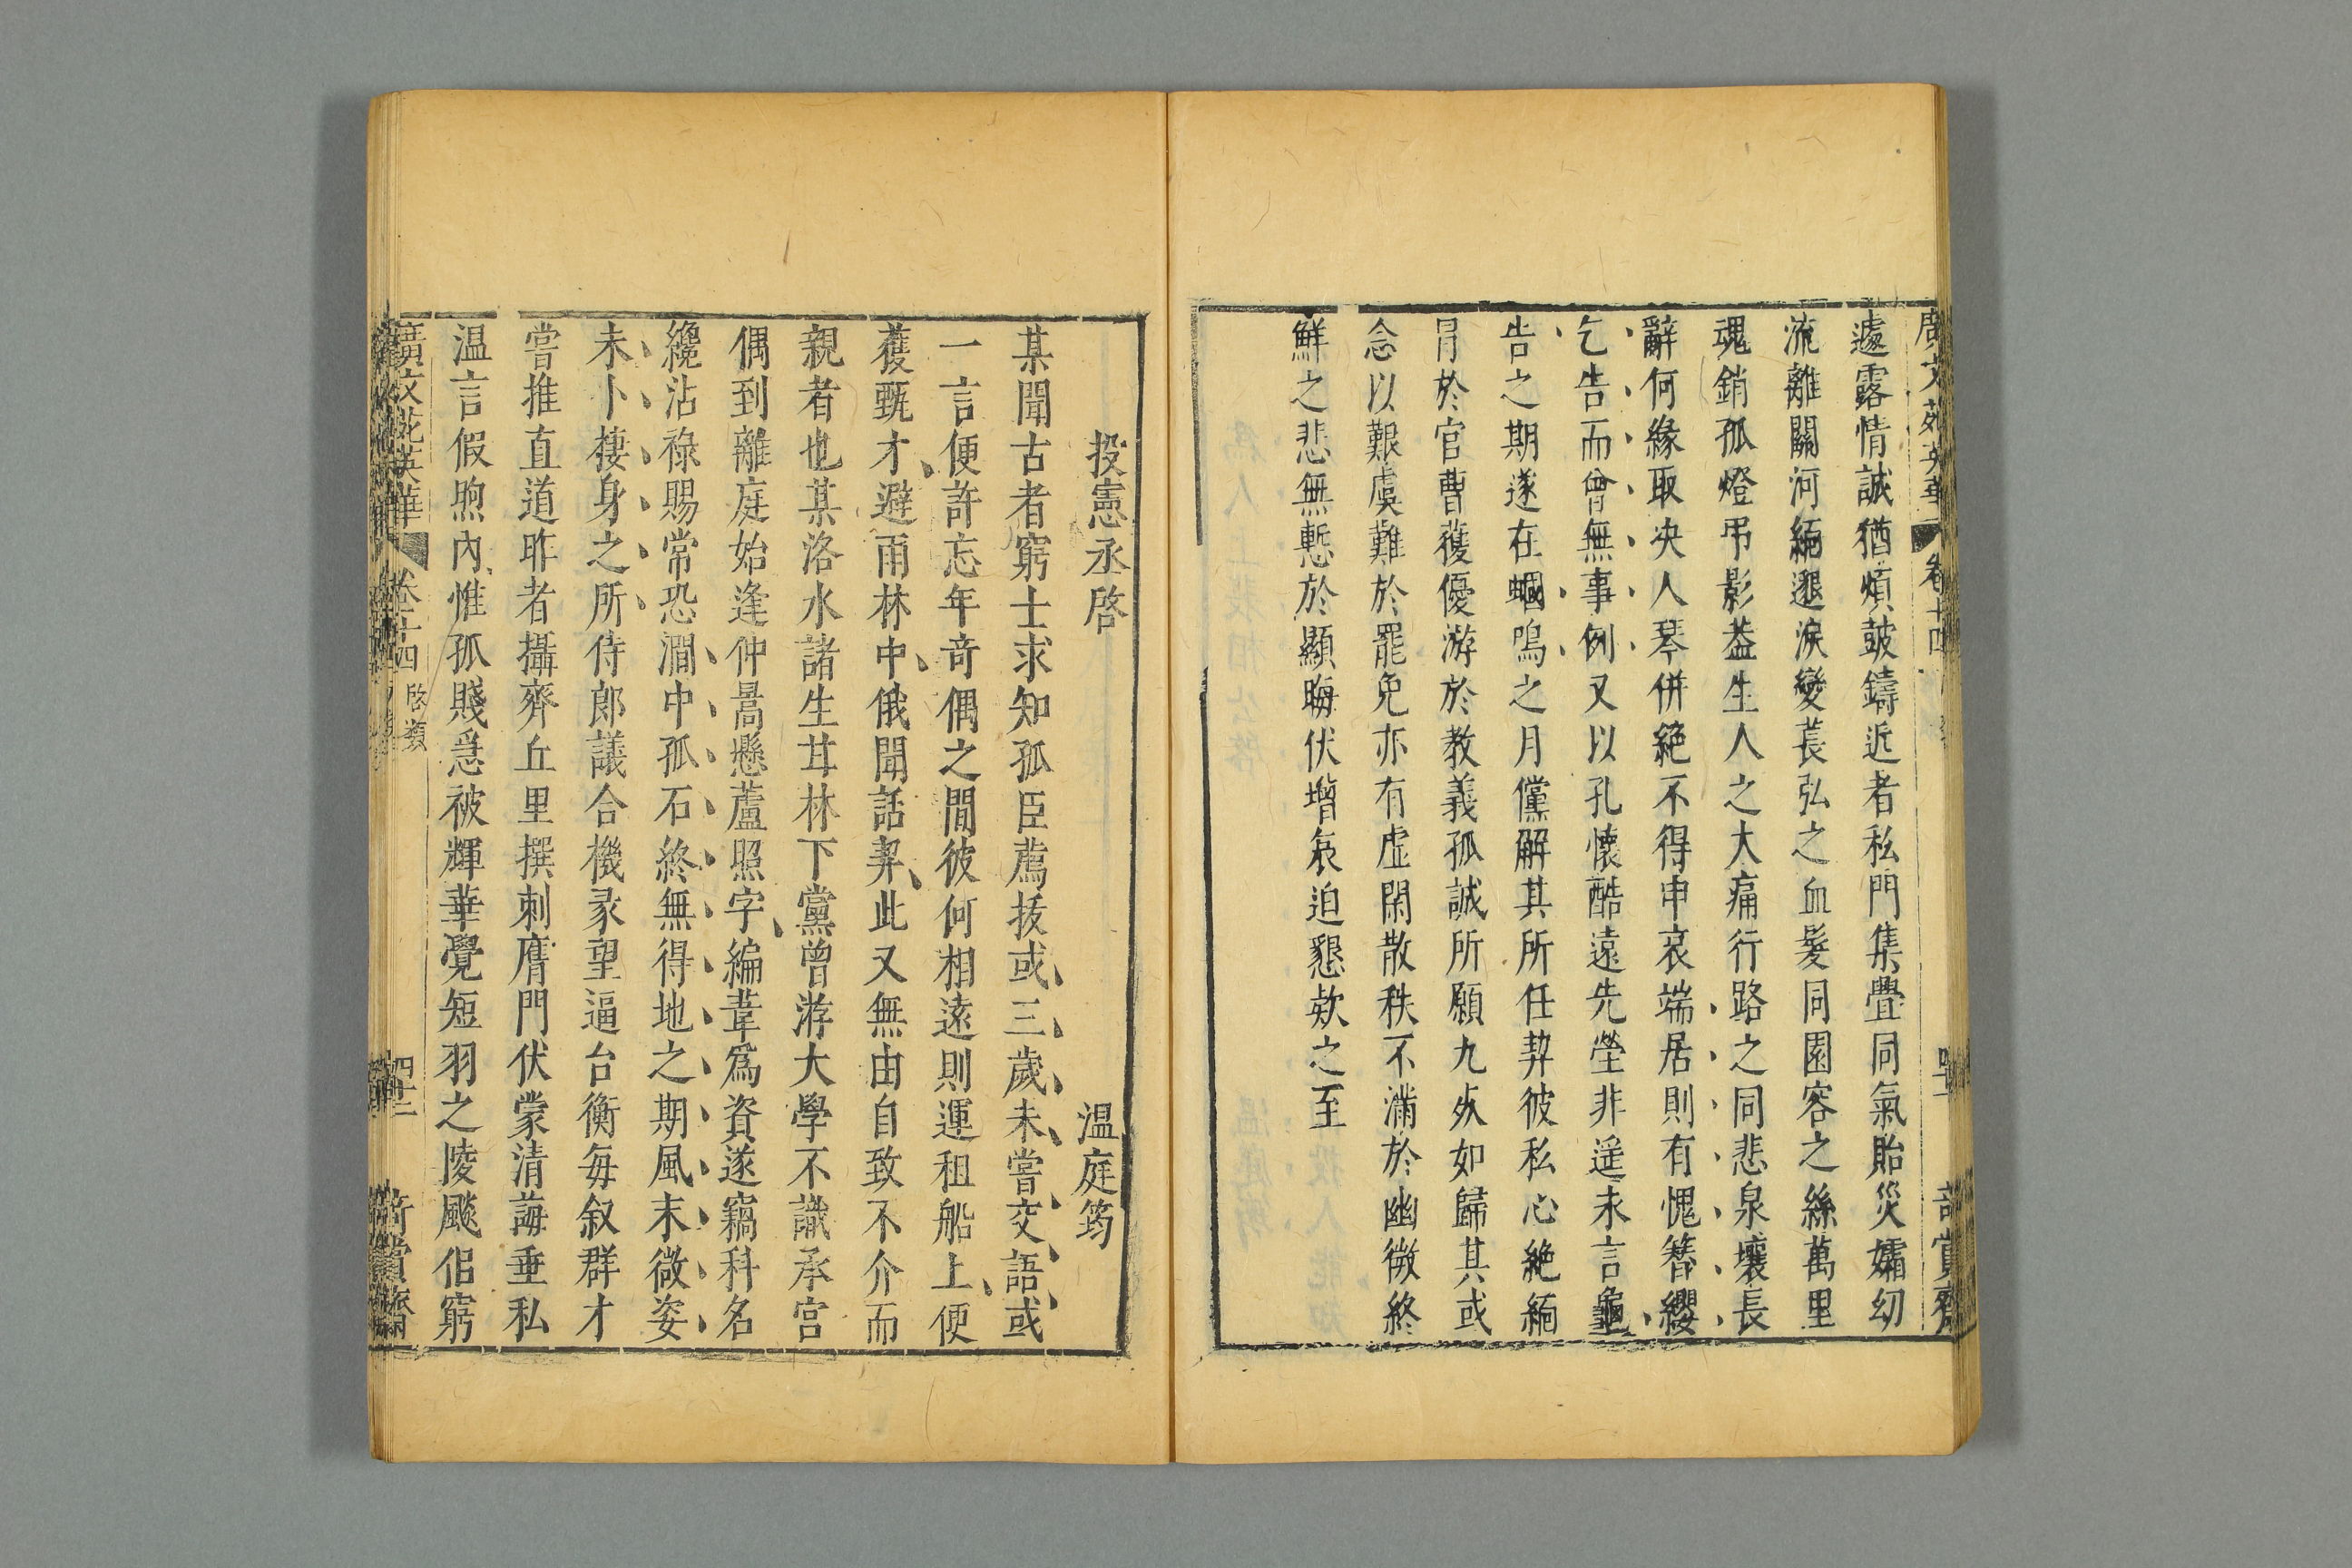 遽露情誠猶煩皷鑄近者私門集釁同氣貽災孀幼
流離關河緬邈淚變萇弘之血髮同園客之絲萬里
魂銷孤燈弔影葢生人之大痛行路之同悲泉壤長
辭何緣取决人琴併絕不得申哀端居則有愧簪纓
乞告而曾無事例又以孔懷酷遠先塋非遥未言龜
告之期遂在蟈鳴之月儻解其所任契彼私心絕緬
冐於官曹獲優游於教義孤誠所願九歿如歸其或
念以艱虞難於罷免亦有虛閑散秩不滿於幽微終
鮮之悲無慙於顯晦伏增哀迫懇欵之至
投憲丞啓 温庭筠
某聞古者窮士求知孤臣薦拔或三歲未嘗交語或
一言便許忘年竒偶之間彼何相遠則運租船上便
獲甄才避雨林中俄聞話契此又無由自致不介而
親者也某洛水諸生甘林下黨曾游大學不識承宫
偶到離庭始逢仲暠懸蘆照字編葦爲資遂竊科名
纔沾祿賜常恐澗中孤石終無得地之期風末微姿
未卜棲身之所侍郎議合機彖望逼台衡每叙群才
嘗推直道昨者攝齊丘里撰刺膺門伏蒙清誨垂私
温言假煦内惟孤賤急被輝華覺短羽之陵颷佀窮
廣文苑英華 卷十四 啓類 四十二